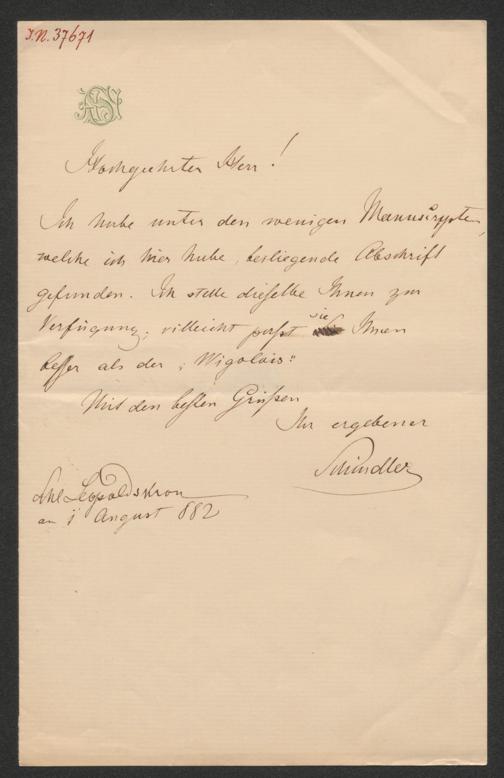 I.N. 37671
Hochgeehrter Herr!
Ich habe unter den wenigen Manuscripten,
welche ich hier habe, beiliegende Abschrift
gefunden. Ich stelle dieselbe Ihnen zur
Verfügung, villeicht paßt sie Ihnen
beßer als der „Wigolais"
Mit den besten Grüßen
Ihr ergebener
Schindler
Schl Leopoldskron
am 1 August 882